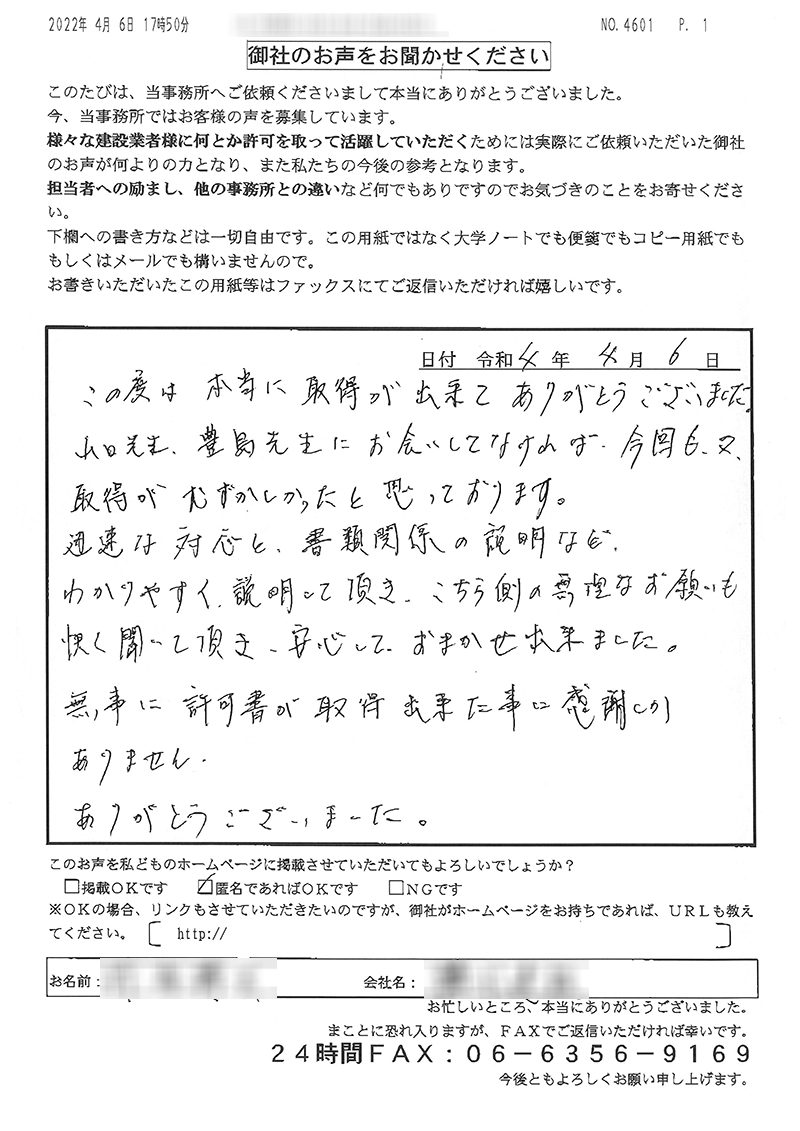 2022年 4月 6日 17時50分
NO.4601 P. 1
御社のお声をお聞かせください
このたびは、当事務所へご依頼くださいまして本当にありがとうございました。
今、当事務所ではお客様の声を募集しています。
様々な建設業者様に何とか許可を取って活躍していただくためには実際にご依頼いただいた御社
のお声が何よりの力となり、また私たちの今後の参考となります。
担当者への励まし、他の事務所との違いなど何でもありですのでお気づきのことをお寄せくださ
い。
下欄への書き方などは一切自由です。この用紙ではなく大学ノートでも便箋でもコピー用紙でも
もしくはメールでも構いませんので。
お書きいただいたこの用紙等はファックスにてご返信いただければ嬉しいです。
日付 令和 4 年 4 月 6 日
この度は 本当に 取得が 出来て ありがとうございました。
山口先生、豊島先生に お会いしてなければ、今回も、又、
取得が むずかしかったと 思っております。
迅速な 対応と、書類関係の 説明など、
わかりやすく、説明して 頂き、こちら側の 無理なお願いも
快く 聞いて 頂き、安心して、おまかせ出来ました。
無事に 許可書が 取得 出来た 事に 感謝しか
ありません。
ありがとうございました。
このお声を私どものホームページに掲載させていただいてもよろしいでしょうか?
□掲載OKです ☑匿名であればOKです □NGです
※OKの場合、リンクもさせていただきたいのですが、御社がホームページをお持ちであれば、URLも教え
てください。〔 http:// 〕
お名前: 会社名:
お忙しいところ、本当にありがとうございました。
まことに恐れ入りますが、FAXでご返信いただければ幸いです。
24時間FAX:06-6356-9169
今後ともよろしくお願い申し上げます。